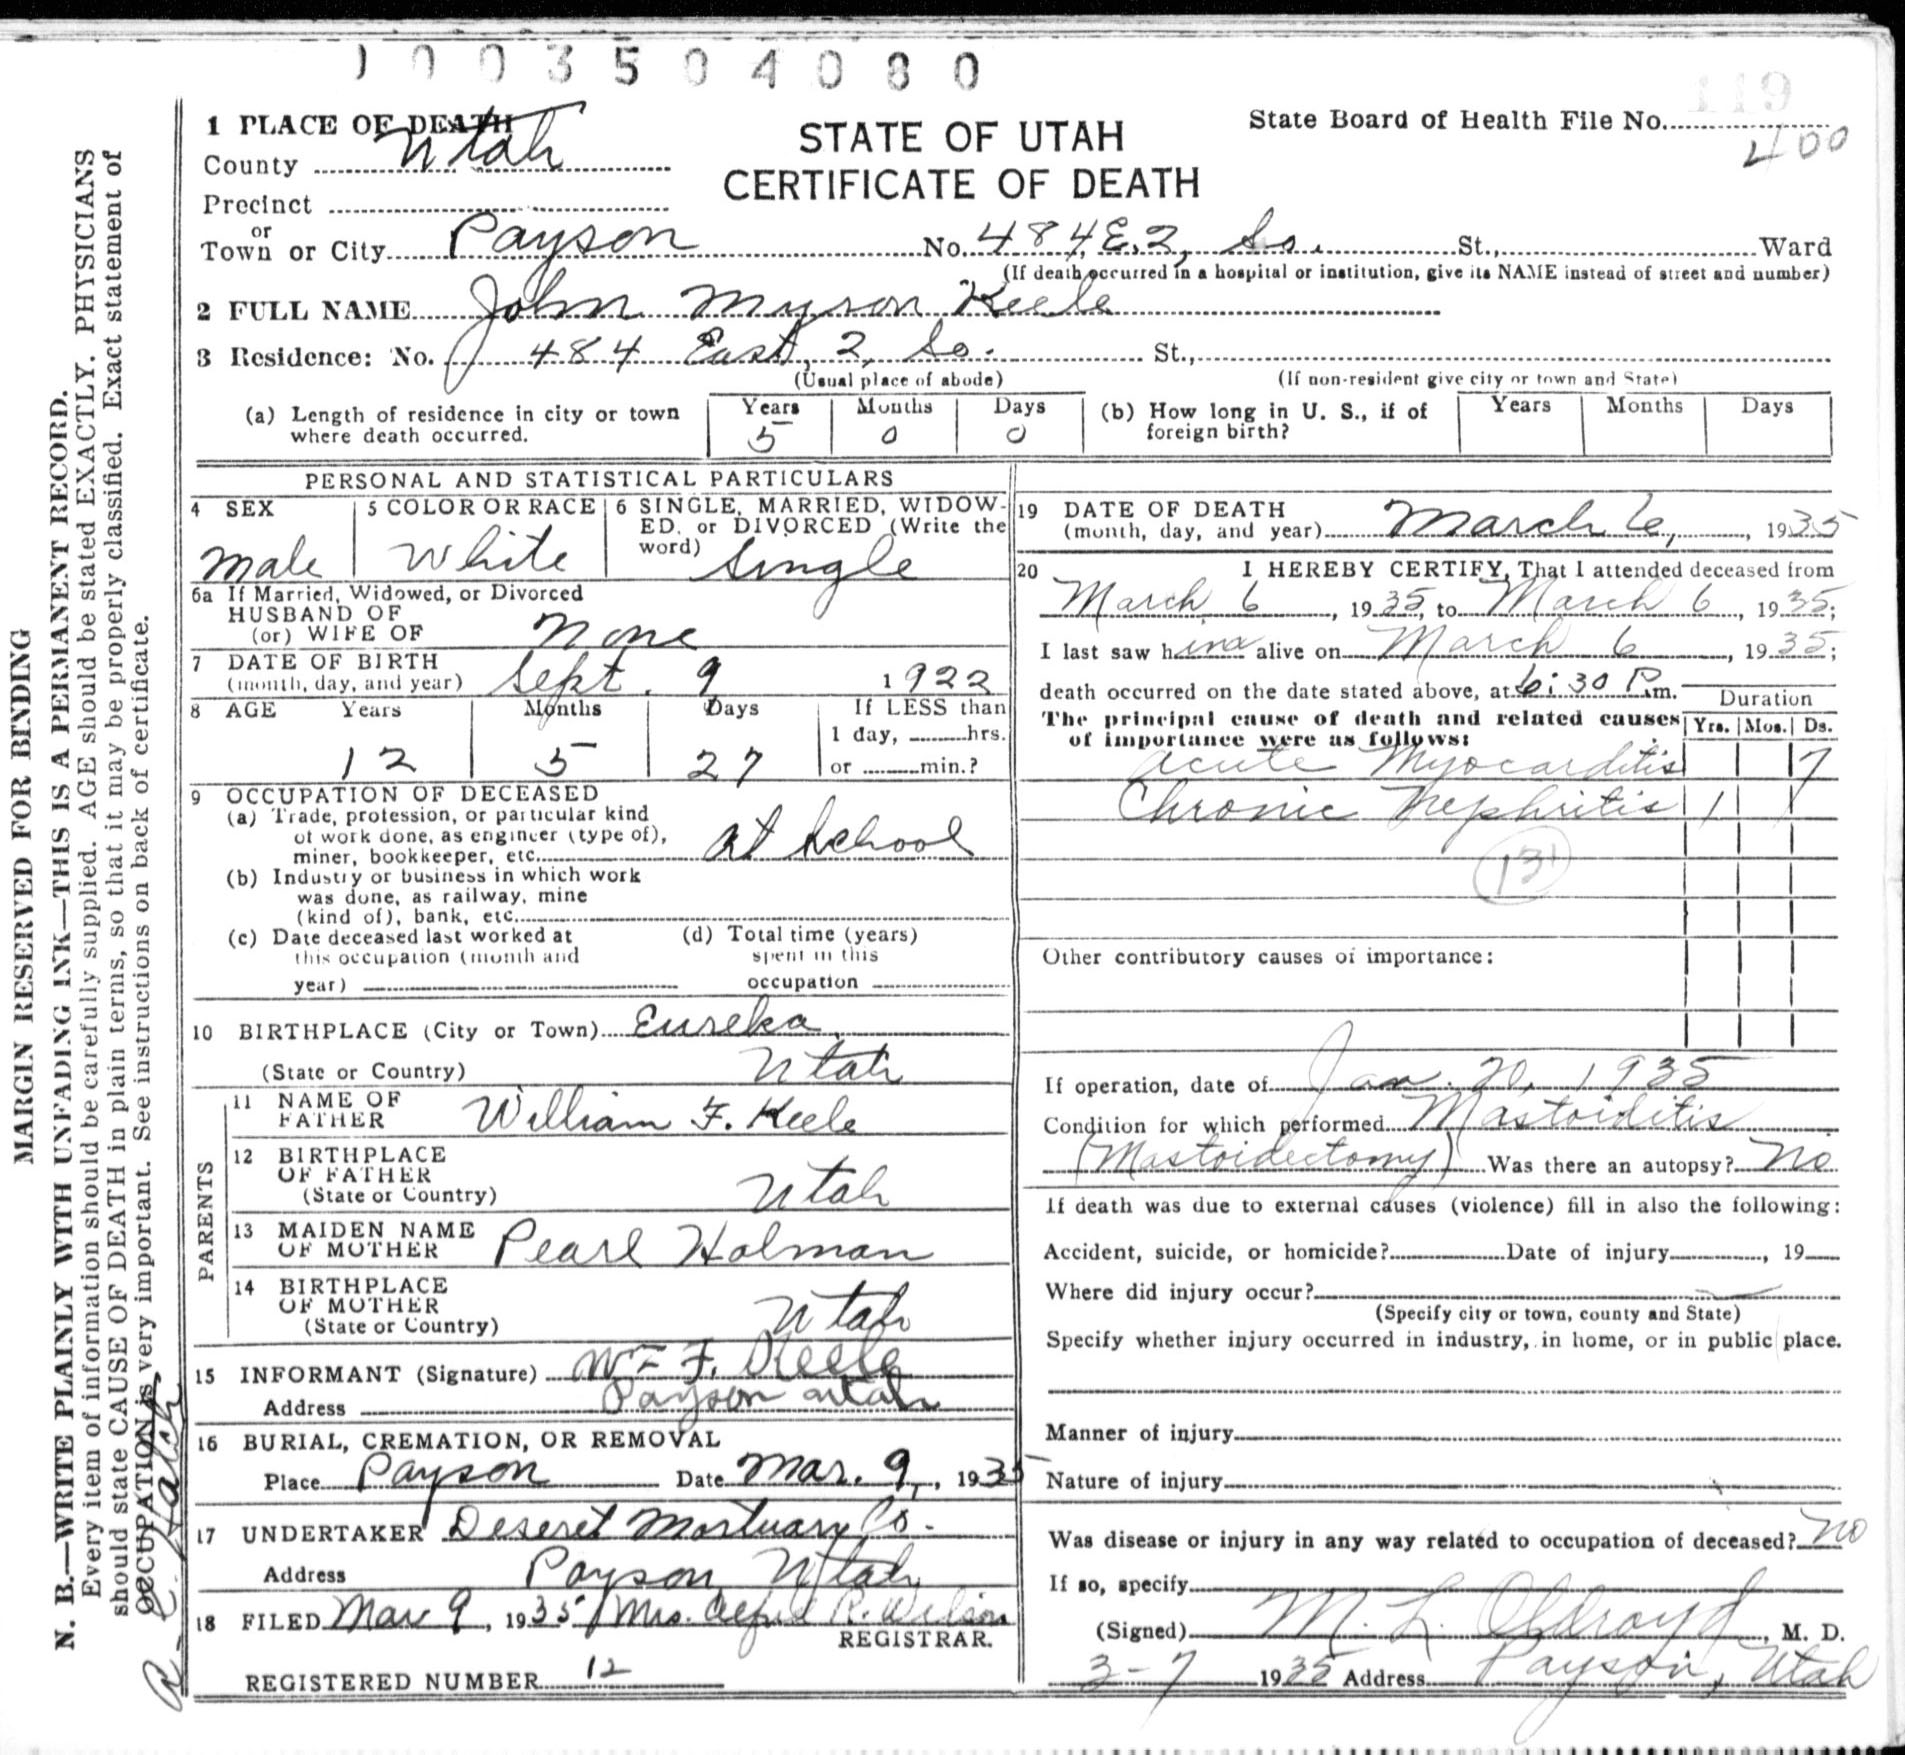 1003504080
119
1 PLACE OF DEATH
County Utah
STATE OF UTAH
CERTIFICATE OF DEATH
State Board of Health File No.
400
Precinct
or
Town or City Payson No. 484 E. 2, So. St., Ward
(If death occurred in a hospital or institution, give its NAME instead of street and number)
2 FULL NAME John Myron Keele
3 Residence: No. 484 East, 2, So. St.,
(Usual place of abode) (If non-resident give city or town and State)
(a) Length of residence in city or town where death occurred. Years 5 Months 0 Days 0
(b) How long in U. S., if of foreign birth? Years Months Days
PERSONAL AND STATISTICAL PARTICULARS
4 SEX
Male
5 COLOR OR RACE
White
6 SINGLE, MARRIED, WIDOW-
ED, or DIVORCED (Write the
word) Single
6a If Married, Widowed, or Divorced
HUSBAND OF
(or) WIFE OF None
7 DATE OF BIRTH
(month, day, and year) Sept. 9 1922
8 AGE Years Months Days If LESS than
1 day, hrs.
12 5 27 or min.?
9 OCCUPATION OF DECEASED
(a) Trade, profession, or particular kind
of work done, as engineer (type of),
miner, bookkeeper, etc. at School
(b) Industry or business in which work
was done, as railway, mine
(kind of), bank, etc.
(c) Date deceased last worked at
this occupation (month and
year)
(d) Total time (years)
spent in this
occupation
10 BIRTHPLACE (City or Town) Eureka,
(State or Country) Utah
PARENTS
11 NAME OF
FATHER William F. Keele
12 BIRTHPLACE
OF FATHER
(State or Country) Utah
13 MAIDEN NAME
OF MOTHER Pearl Holman
14 BIRTHPLACE
OF MOTHER
(State or Country) Utah
15 INFORMANT (Signature) Wm F. Keele
Address Payson Utah
16 BURIAL, CREMATION, OR REMOVAL
Place Payson Date Mar. 9, 1935
17 UNDERTAKER Deseret Mortuary Co.
Address Payson Utah
18 FILED Mar 9, 1935 Mrs. Alfred R. Wilson
REGISTRAR.
REGISTERED NUMBER 12
19 DATE OF DEATH
(month, day, and year) March 6, 1935
20 I HEREBY CERTIFY, That I attended deceased from
March 6, 1935, to March 6, 1935;
I last saw him alive on March 6, 1935;
death occurred on the date stated above, at 6:30 P.m.
Duration
The principal cause of death and related causes
of importance were as follows: Yrs. Mos. Ds.
Acute Myocarditis 7
Chronic Nephritis 1
131
Other contributory causes of importance:
If operation, date of Jan. 20, 1935
Condition for which performed Mastoiditis
(Mastoidectomy) Was there an autopsy? No
If death was due to external causes (violence) fill in also the following:
Accident, suicide, or homicide? Date of injury , 19
Where did injury occur?
(Specify city or town, county and State)
Specify whether injury occurred in industry, in home, or in public place.
Manner of injury
Nature of injury
Was disease or injury in any way related to occupation of deceased? No
If so, specify
(Signed) M. L. Oldroyd, M. D.
3-7 1935 Address Payson, Utah
MARGIN RESERVED FOR BINDING
N. B.—WRITE PLAINLY WITH UNFADING INK—THIS IS A PERMANENT RECORD.
Every item of information should be carefully supplied. AGE should be stated EXACTLY. PHYSICIANS
should state CAUSE OF DEATH in plain terms, so that it may be properly classified. Exact statement of
OCCUPATION is very important. See instructions on back of certificate.
Hatch